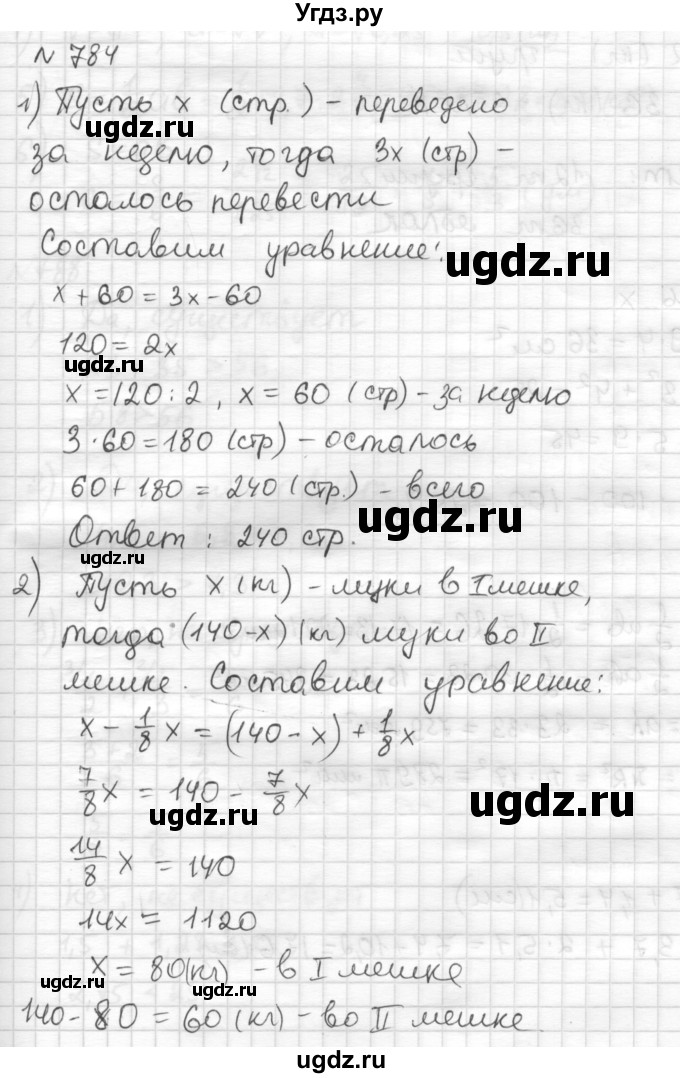 Угдз.ру
№ 784
1) Пусть x (стр.) – переведено
ugdz.ru
за неделю, тогда 3x (стр) –
осталось перевести
Составим уравнение:
ugdz.ru
x + 60 = 3x – 60
120 = 2x
ugdz.ru
x = 120 : 2 , x = 60 (стр) – за неделю
3 · 60 = 180 (стр) – осталось
60 + 180 = 240 (стр.) – всего
ugdz.ru
Ответ : 240 стр.
ugdz.ru
2) Пусть x (кг) – муки в I мешке,
тогда (140 – x) (кг) муки во II
ugdz.ru
мешке. Составим уравнение:
x – 1/8 x = (140 – x) + 1/8 x
7/8 x = 140 – 7/8 x
ugdz.ru
ugdz.ru
14/8 x = 140
14x = 1120
x = 80 (кг) – в I мешке
ugdz.ru
140 – 80 = 60 (кг) – во II мешке
ugdz.ru